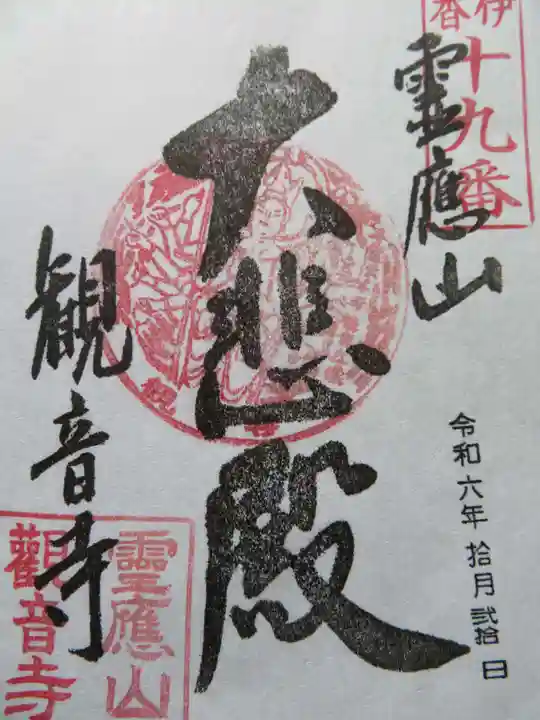 伊
番
十九番
靈應山
大悲殿
観音寺
令和六年 拾月 弐拾 日
靈應山
觀音寺